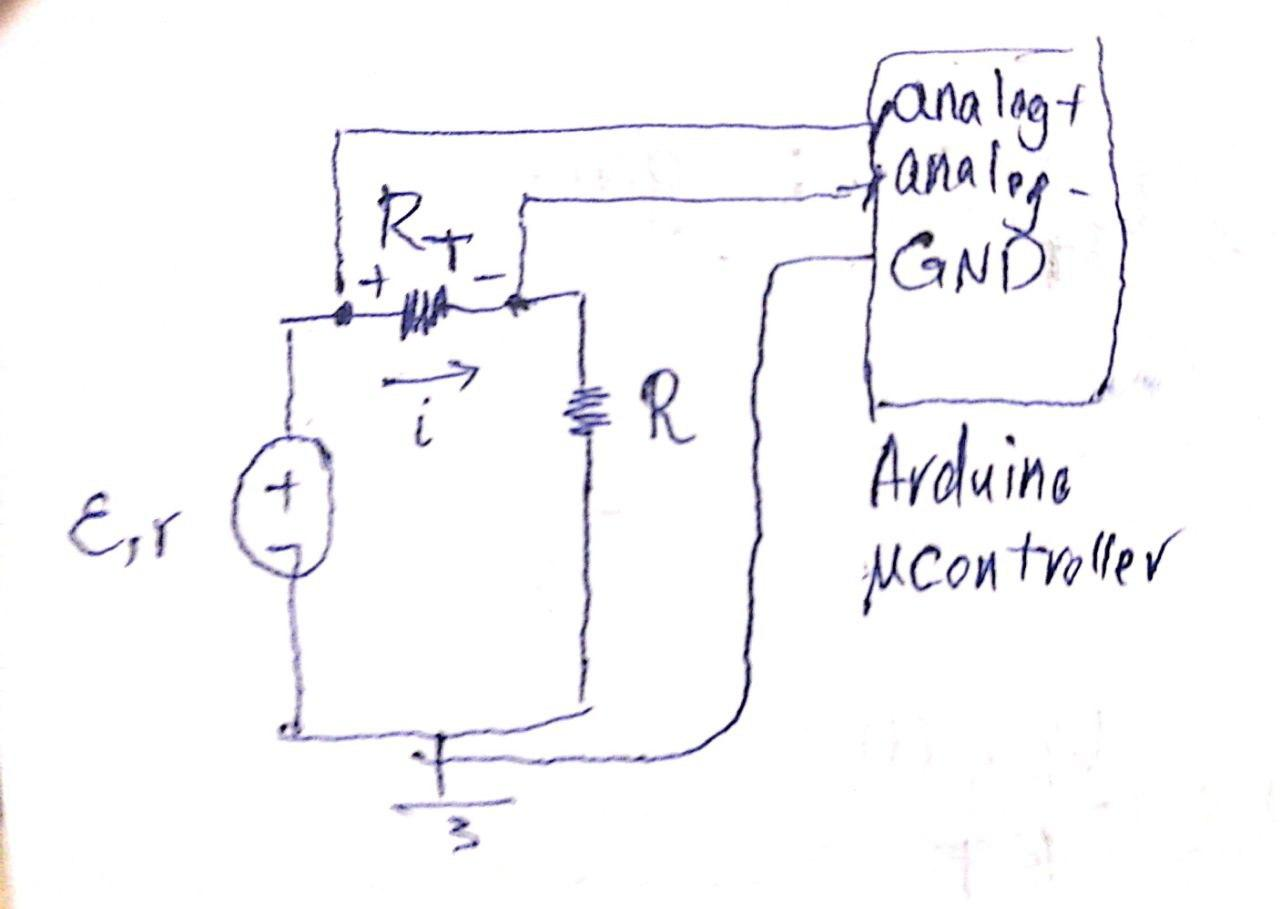 analog+
analog-
GND
R_T
+ -
i
R
+
-
ε,r
Arduino
μcontroller